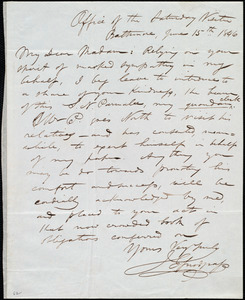 Office of the Saturday Visiter
Baltimore, June 15th 1846
My dear Madam: Relying on your
spirit of marked sympathy in my
behalf, I beg leave to introduce
to a share of your kindness, the bearer
of this my quondam clerk
goes North to visit his
relatives and has consented, mean-
while, to expect in behalf
of my paper. Any thing you
may do towards promoting his
comfort and success, will be
cordially acknowledged by me
and placed to your acct in
that now crowded book of
obligations conferred on
Yours very truly
J E Snodgrass